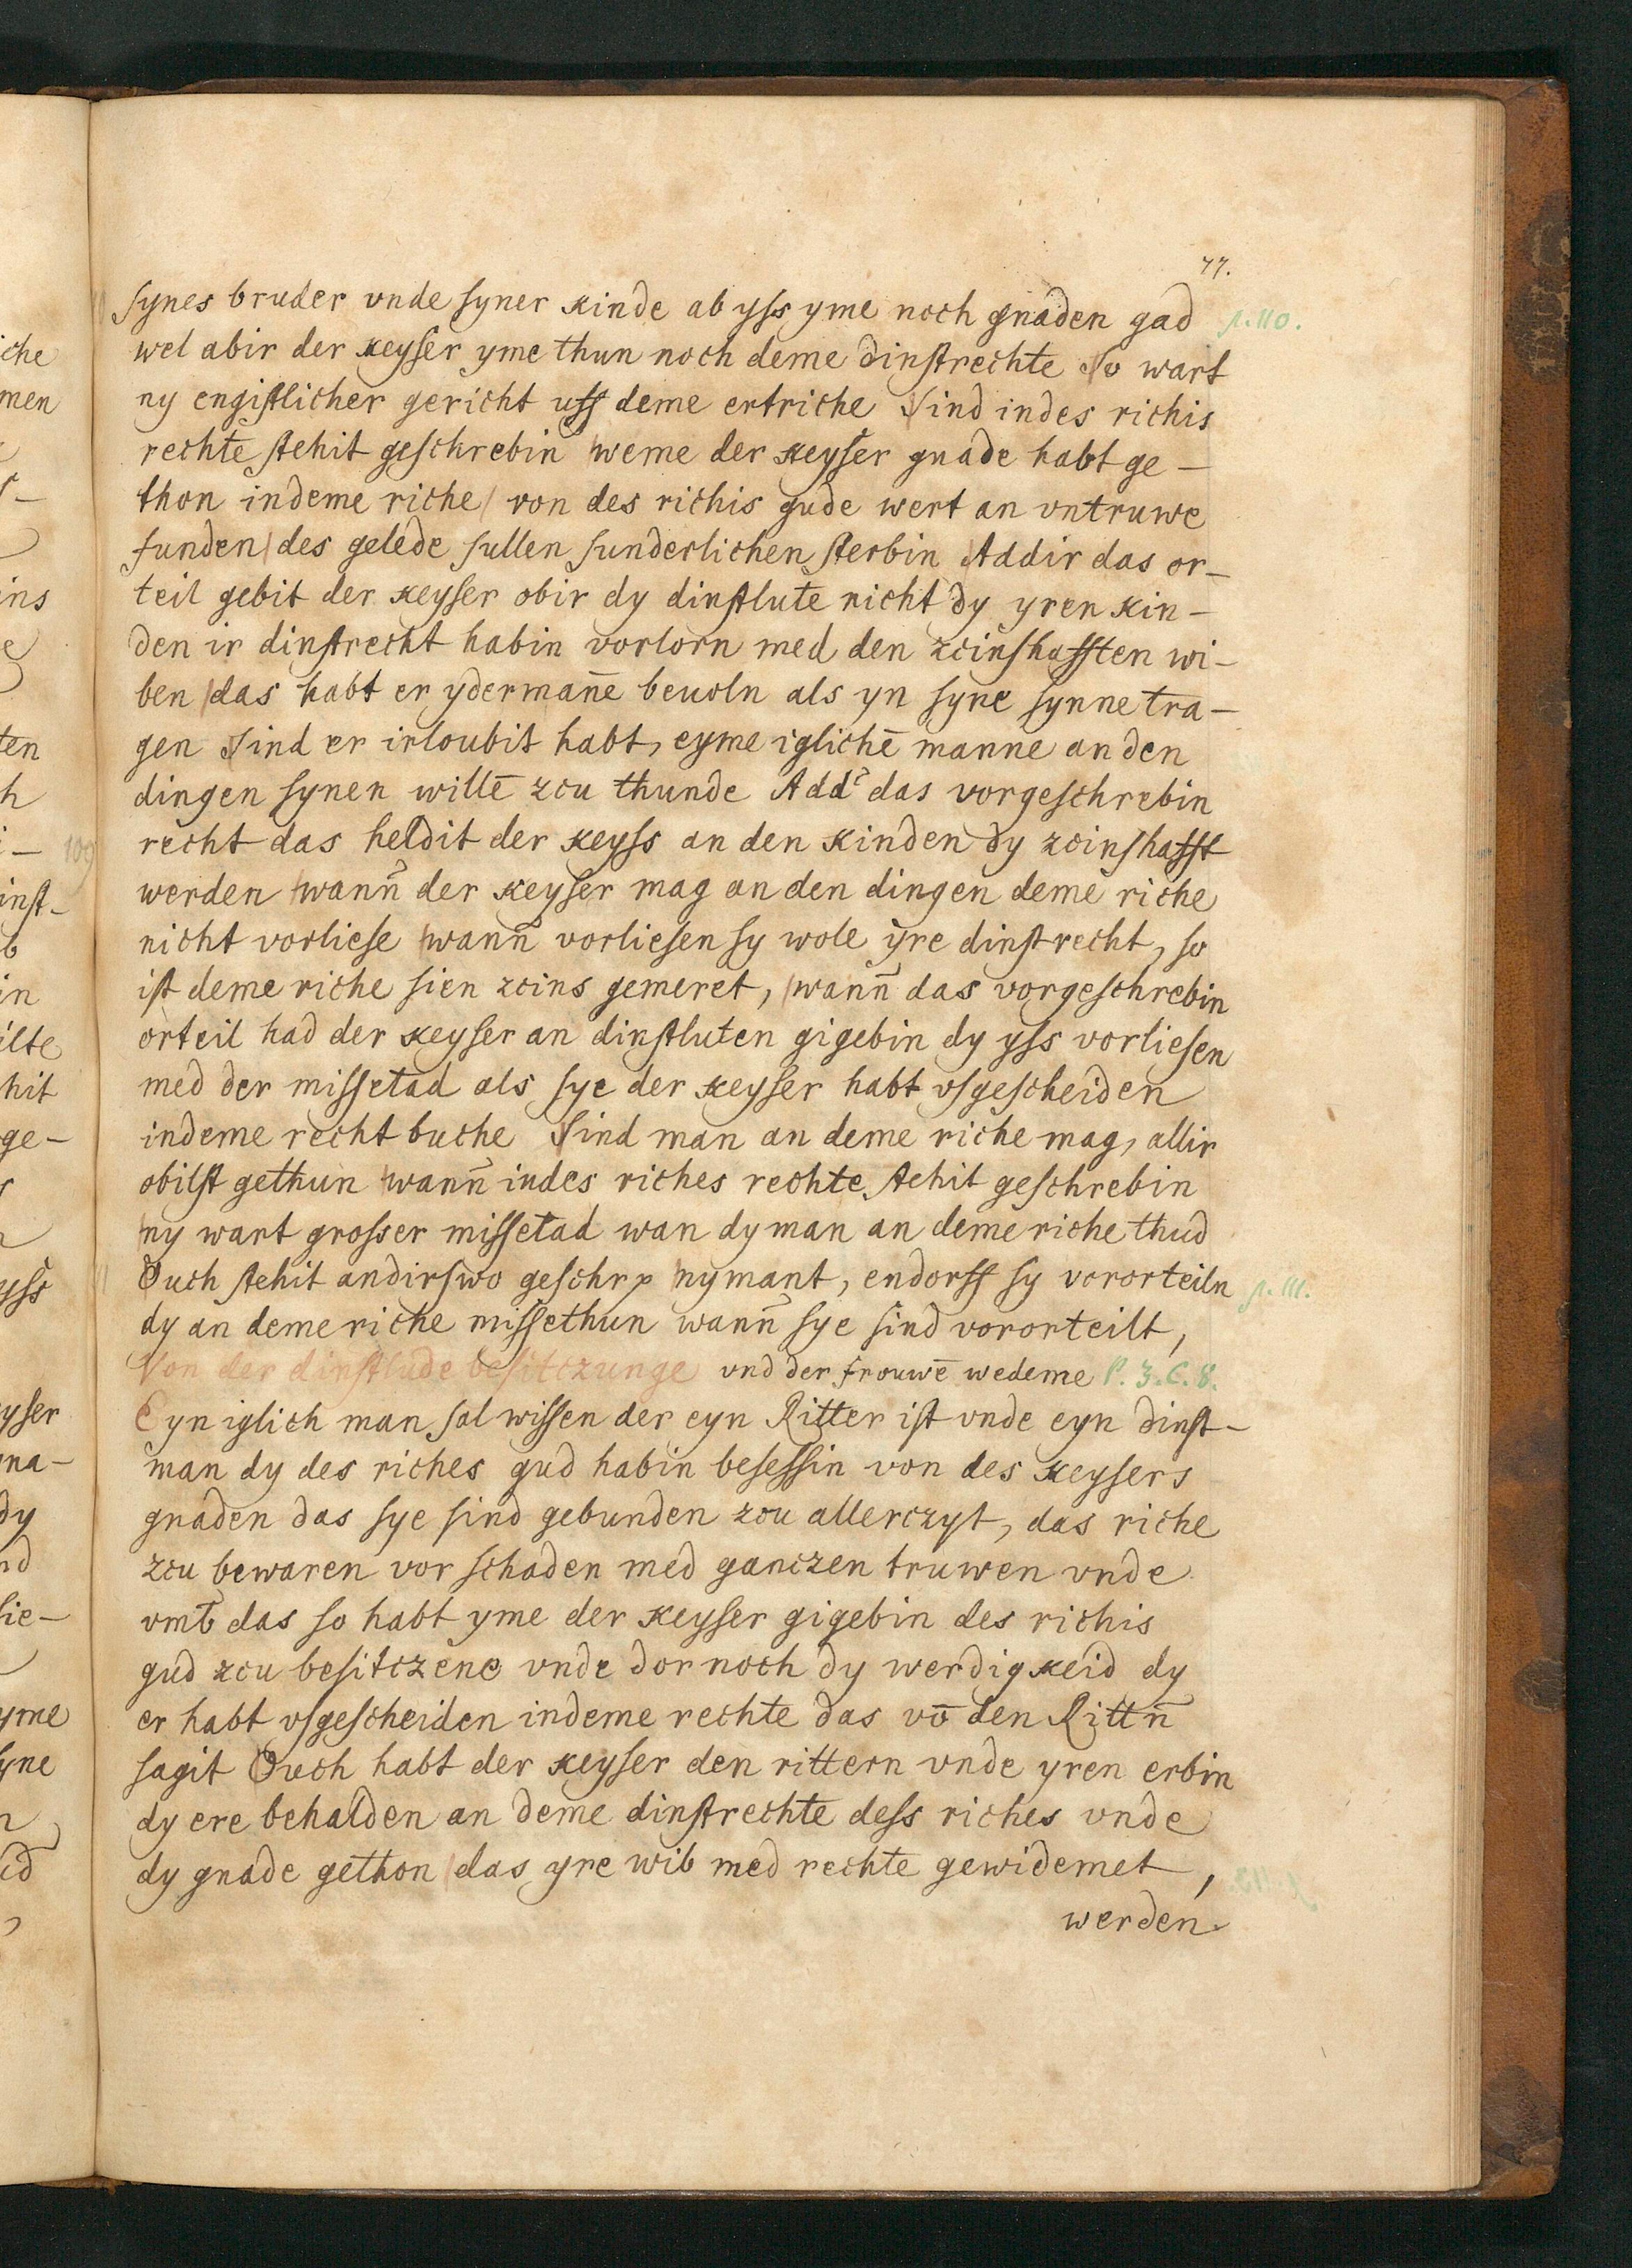 77.
synes bruder vnde syner kinde ab yss yme noch gnaden gad p. 110.
wel abir der keyser yme thun noch deme dinstrechte So wart
ny engistlicher gericht uff deme ertriche Sind indes richis
rechte stehit geschrebin weme der keyser gnade habt ge-
thon indeme riche / von des richis gude wert an vntruwe
funden / des gelede sullen sunderlichen sterbin Addir das or-
teil gebit der keyser obir dy dinstlute nicht dy yren kin-
den ir dinstrecht habin vorlorn med den zcinshafften wi-
ben / das habt er ydermañe beuoln als yn syne synne tra-
gen Sind er irloubit habt, eyme iglichē manne an den
dingen synen willē zcu thunde Add' das vorgeschrebin
recht das heldit der keyss an den kinden dy zcinshafft
werden wann̄ der keyser mag an den dingen deme riche
nicht vorliese wann̄ vorliesen sy wole yre dinstrecht, so
ist deme riche sien zcins gemeret, wann̄ das vorgeschrebin
orteil had der keyser an dinstluten gigebin dy yss vorliesen
med der missetad als sye der keyser habt vsgescheiden
indeme recht buche Sind man an deme riche mag, allir
obilst gethun wann̄ indes riches rechte stehit geschrebin
ny wart grosser missetad wan dy man an deme riche thud
Ouch stehit andirswo geschrp nymant, endorff sy vororteiln p. 111.
dy an deme riche missethun wann̄ sye sind vororteilt,
Von der dinstlude besitczunge vnd der frouwē wedeme P. 3. C. 8.
Eyn iglich man sol wissen der eyn Ritter ist vnde eyn dinst-
man dy des riches gud habin besessin von des keysers
gnaden das sye sind gebunden zcu allerczyt, das riche
zcu bewaren vor schaden med ganczen truwen vnde
vmb das so habt yme der keyser gigebin des richis
gud zcu besitczene vnde dor noch dy werdigkeid dy
er habt vsgescheiden indeme rechte das vō den Rittn̄
sagit Ouch habt der keyser den rittern vnde yren erbin
dy ere behalden an deme dinstrechte dess riches vnde
dy gnade gethon / das yre wib med rechte gewidemet,
werden